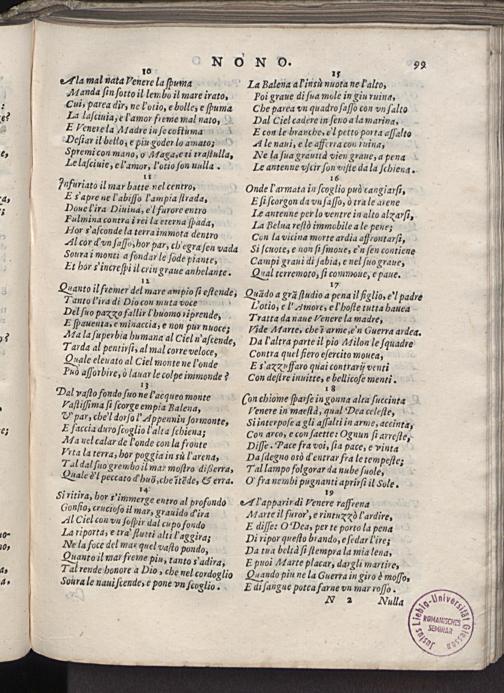 NONO. 99
10
A la mal nata Venere la ſpuma
Manda ſin ſotto il lembo il mare irato,
Cui, parea dir, ne l'otio, e bolle, e ſpuma
La laſciuia, e l'amor freme mal nato,
E Venere la Madre in ſe coſtuma
Deſiar il bello, e piu goder lo amato;
Spremi con mano, o Maga, e ti traſtulla,
Le laſciuie, e l'amor, l'otio ſon nulla.
11
Infuriato il mar batte nel centro,
E s'apre ne l'abiſſo l'ampia ſtrada,
Doue l'ira Diuina, e'l furore entro
Fulmina contra i rei la eterna ſpada,
Hor s'aſconde la terra immota dentro
Al cor d'vn ſaſſo, hor par, ch'egra ſen vada
Soura i monti a fondar le ſode piante,
Et hor s'increſpi il crin graue anhelante.
12
Quanto il fremer del mare ampio ſi eſtende,
Tanto l'ira di Dio con muta voce
Del ſuo pazzo fallir l'huomo riprende,
E ſpauenta, e minaccia, e non pur nuoce;
Ma la ſuperbia humana al Ciel n'aſcende,
Tarda al pentirſi, al mal corre veloce,
Quale eleuato al Ciel monte ne l'onde
Può aſſorbire, ò lauar le colpe immonde?
13
Dal vaſto fondo ſuo ne l'acqueo monte
Vaſtiſſima ſi ſcorge empia Balena,
V' par, che'l dorſo l'Appennin formonte,
E faccia duro ſcoglio l'alta ſchiena;
Ma nel calar de l'onde con la fronte
Vrta la terra, hor poggia in sù l'arena,
Tal dal ſuo grembo il mar moſtro diſſerra,
Quale è'l peccato d'huō, che ītēde, & erra.
14
Si ritira, hor s'immerge entro al profondo
Gonfio, crucioſo il mar, grauido d'ira
Al Ciel con vn ſoſpir dal cupo fondo
La riporta, e tra' flutti alti l'aggira;
Ne la foce del mar quel vaſto pondo,
Quanto il mar freme piu, tanto s'adira,
Tal rende honore à Dio, che nel cordoglio
Soura le naui ſcende, e pone vn ſcoglio.
15
La Balena a l'insù nuota ne l'alto,
Poi graue di ſua mole in giu ruina,
Che parea vn quadro ſaſſo con vn ſalto
Dal Ciel cadere in ſeno a la marina,
E con le branche, e'l petto porta aſſalto
A le naui, e le afferra con ruina,
Ne la ſua grauità vien graue, a pena
Le antenne vſcir ſon viſte da la ſchiena.
16
Onde l'armata in ſcoglio può cangiarſi,
E ſi ſcorgon da vn ſaſſo, ò tra le arene
Le antenne per lo ventre in alto alzarſi,
La Belua reſtò immobile a le pene;
Con la vicina morte ardia affrontarſi,
Si ſcuote, e non ſi ſmoue, e'n ſen contiene
Campi graui di ſabia, e nel ſuo graue,
Qual terremoto, ſi commoue, e paue.
17
Quādo a grā ſtudio a pena il figlio, e'l padre
L'otio, e l'Amore, e l'hoſte tutta hauea
Tratta da naue Venere la madre,
Vide Marte, che'n arme, e'n Guerra ardea.
Da l'altra parte il pio Milon le ſquadre
Contra quel fiero eſercito mouea,
E s'azzoffaro quai contrarij venti
Con deſtre inuitte, e bellicoſe menti.
18
Con chiome ſparſe in gonna alta ſuccinta
Venere in maeſtà, qual Dea celeſte,
Si interpoſe a gli aſſalti in arme, accinta,
Con arco, e con ſaette: Ognun ſi arreſte,
Diſſe. Pace fra voi, ſia pace, e vinta
Da ſdegno osò d'entrar fra le tempeſte;
Tal lampo folgorar da nube ſuole,
O fra nembi pugnanti aprirſi il Sole.
19
A l'apparir di Venere raffrena
Marte il furor', e rintuzzò l'ardire,
E diſſe: O Dea, per te porto la pena
Di ripor queſto brando, e ſedar l'ire;
Da tua beltà ſi ſtempra la mia lena,
E puoi Marte placar, dargli martire,
Quando piu ne la Guerra in giro è moſſo,
E di ſangue potea farne vn mar roſſo.
N 2 Nulla
Justus Liebig-Universität Giessen
ROMANISCHES
SEMINAR